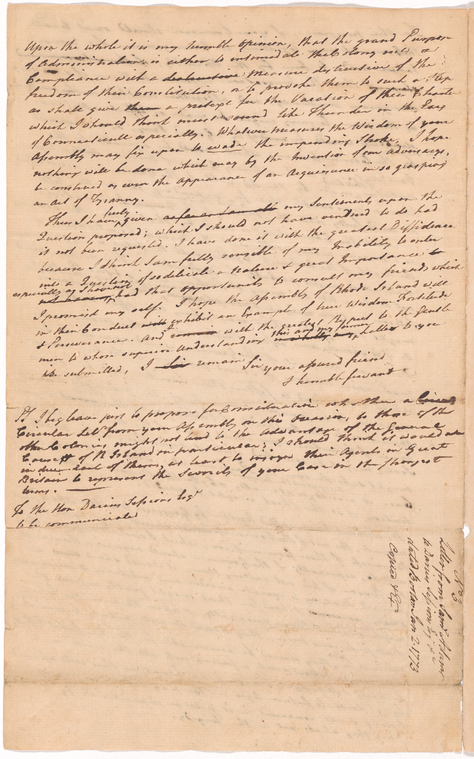 Upon the whole it is my humble opinion, that the grand Purpose
of Administration is either to intimidate that Colony into a
Compliance with a measure destructive of the
freedom of their Constitution, or to provoke them to such a Step
as shall give a pretext for the Vacation of their Charter
which I should think must sound like Thunder in the Ears
of Connecticutt especially. Whatever measures the Wisdom of your
Assembly may fix upon to evade the impending Stroke, I hope
nothing will be done which may by the Invention of our adversarys,
be construed as even the Appearance of an Acquiescence in so grasping
an Act of Tyranny.
Thus I have freely given my Sentiments upon the
Question proposed; which I should not have ventured to do had
it not been requested. I have done it with the greatest Diffidence
because I think I am fully sensible of my Inability to enter
into a Question of so delicate a nature & great Importance
especially as I have not had that opportunity to consult my friends which
I promisd my self. I hope the Assembly of Rhode Island will
in their Conduct exhibit an Example of true Wisdom Fortitude
& Perseverance. And with the greatest Respect to the Gentle
men to whose superior Understanding this my Letter to you
is submitted, I remain Sir your assured friend
& humble servant
PS. I beg leave just to propose for Consideration whether a
Circular Letr from your Assembly on this Occasion, to those of the
other Colonies might not tend to the Advantage of the General
Cause & of R Island in particular; I should think it would
induce each of them, at least to injoyn their Agents in Great
Britain to represent the Severity of your Case in the strongest
terms.
To the Hon Darius Sessions Esqr
to be communicated
No 3
Letter from Saml Adams
to Darius Sessions Esq
dated Boston Jan 2. 1773
Copied